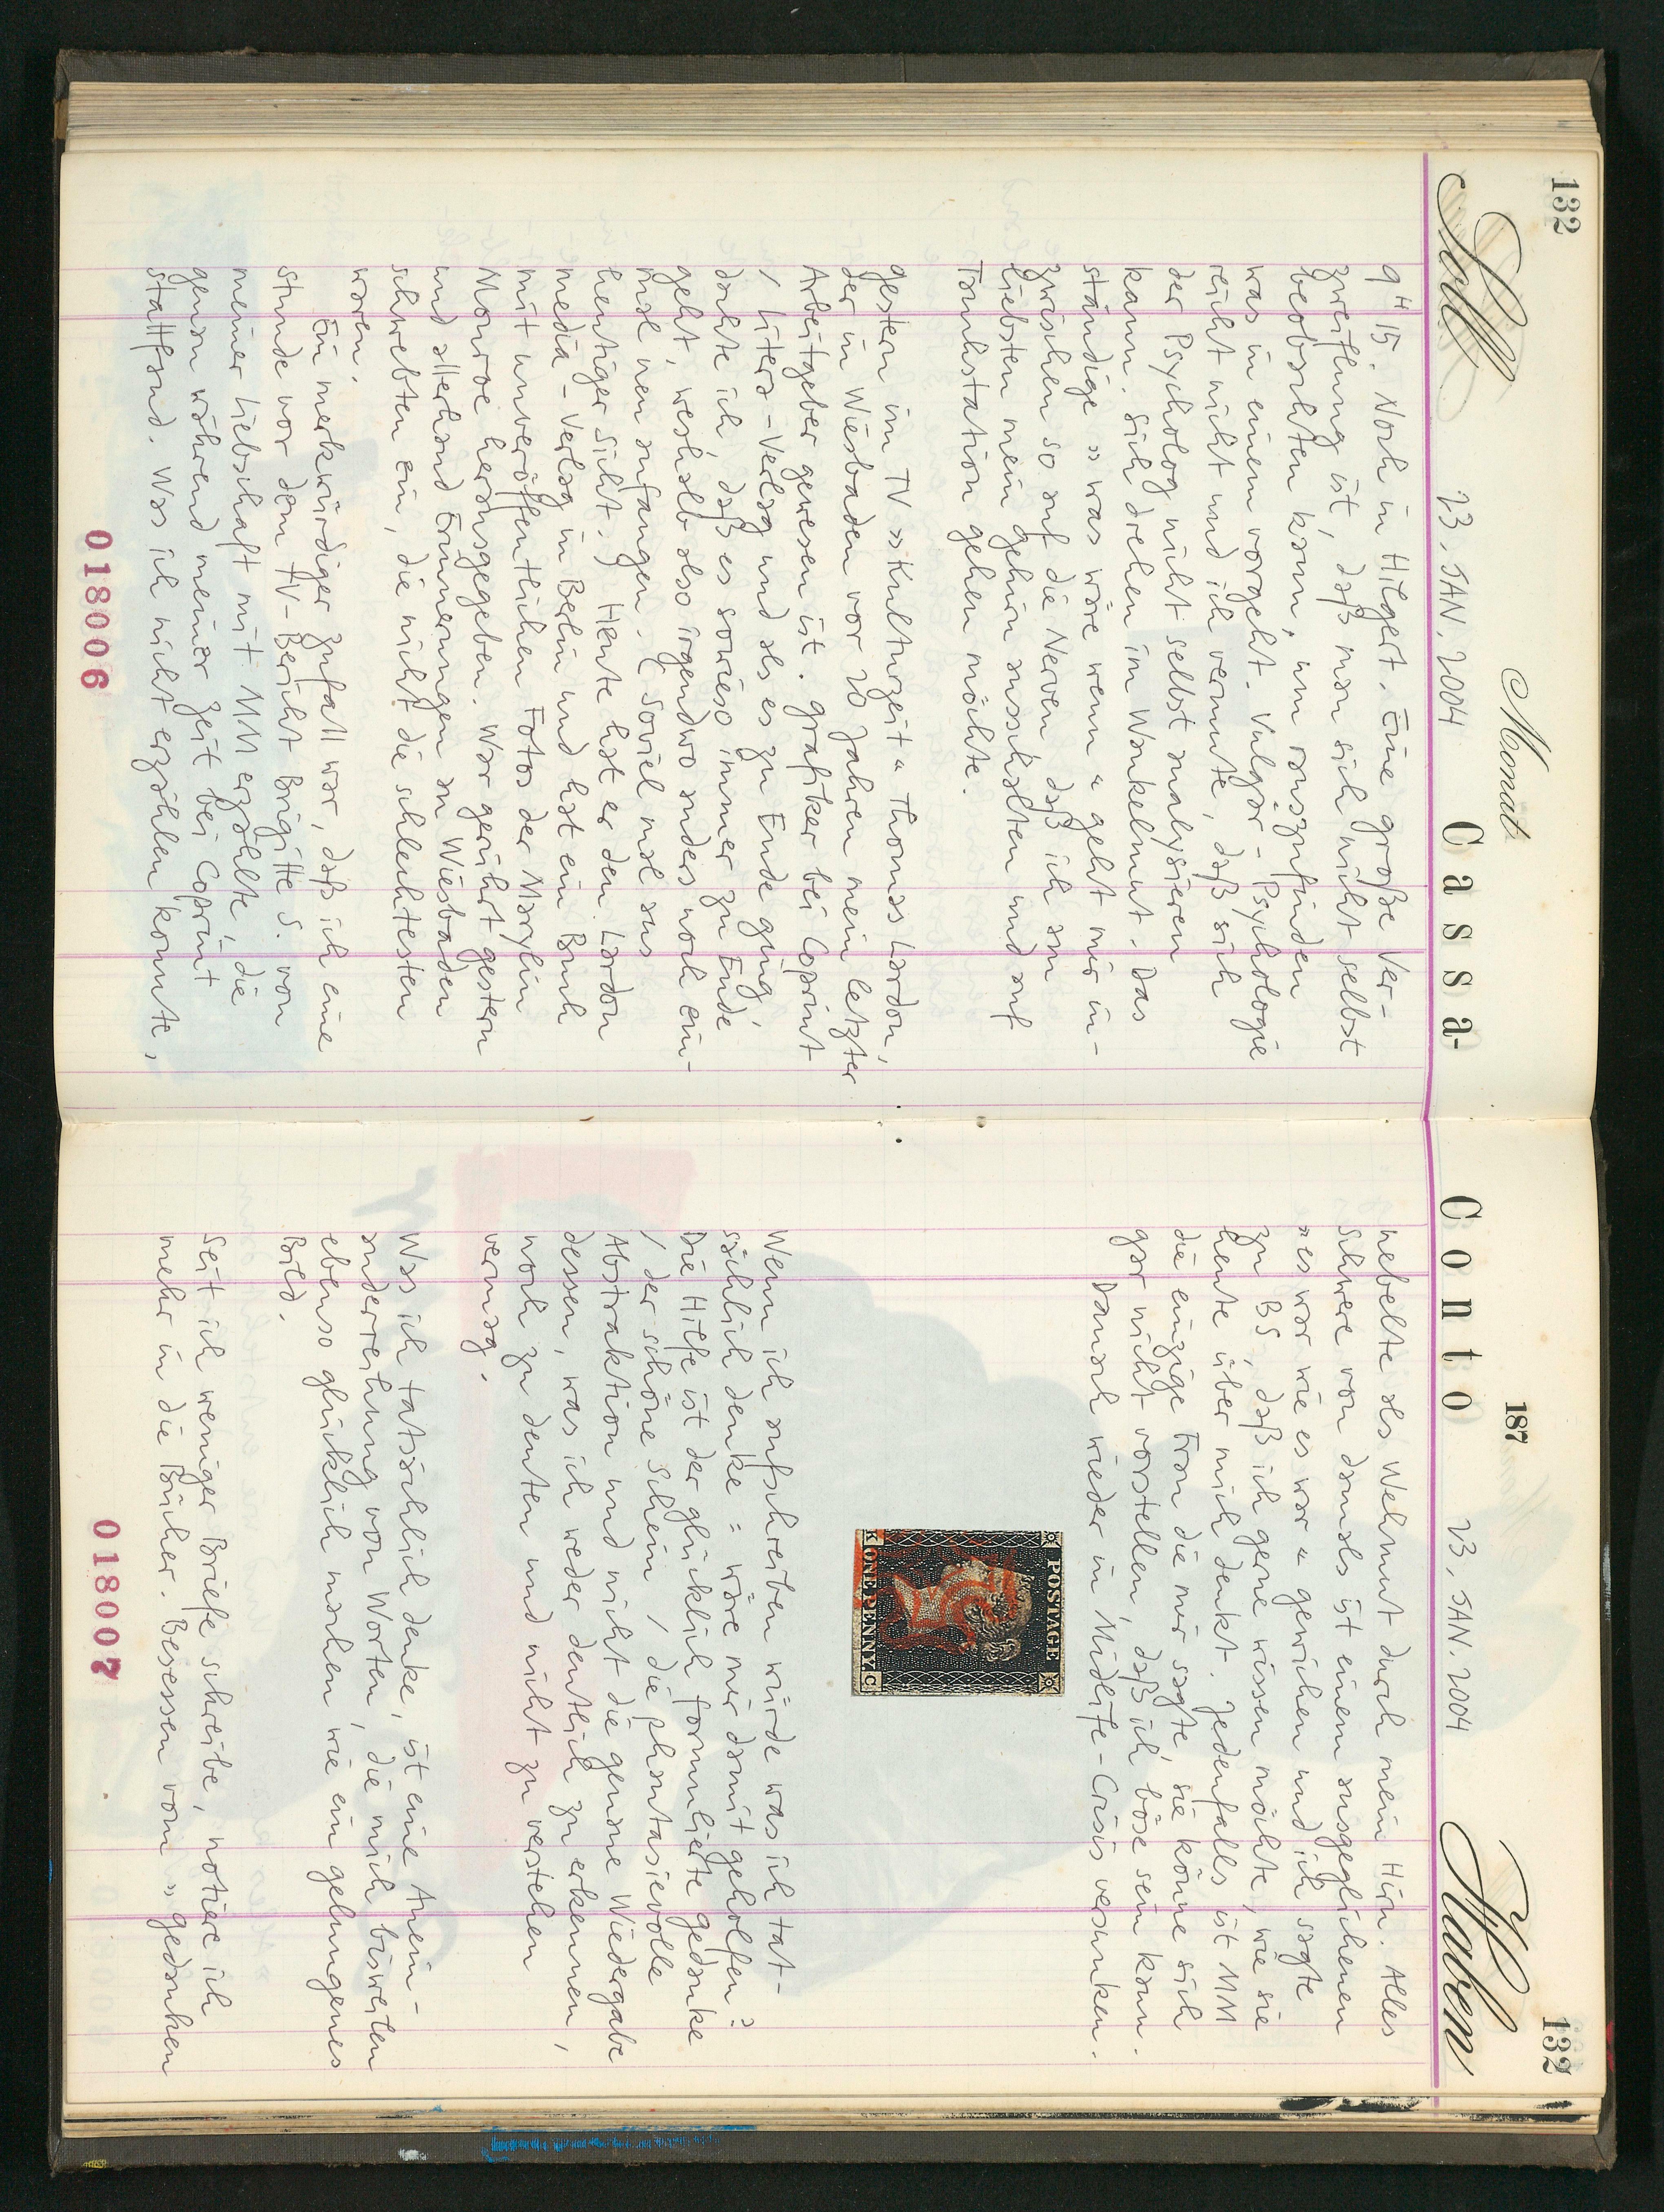 132
Soll
Monat
Cassa-
23. JAN. 2004
9 H 15. Noch in Hilgert. Eine große Ver-
zweiflung ist, daß man sich nicht selbst
beobachten kann, um rauszufinden
was in einem vorgeht. Vulgär-Psychologie
reicht nicht und ich vermute, daß sich
der Psycholog nicht selbst analysieren
kann. Sich drehen im Wankelmut. Das
ständige »was wäre wenn« geht mir in-
zwischen so auf die Nerven daß ich am
liebsten mein Gehirn ausschalten und auf
Traumstation gehen möchte.
gestern im TV »Kulturzeit« Thomas Lardon,
der in Wiesbaden vor 20 Jahren mein letzter
Arbeitgeber gewesen ist. Grafiker bei Coprint
/ Litera-Verlag und als es zu Ende ging,
dachte ich, daß es sowieso immer zu Ende
geht, weshalb also irgendwo anders noch ein-
mal neu anfangen. (Soviel mal aus
heutiger Sicht.) Heute hat er den Lardon
media-Verlag in Berlin und hat ein Buch
mit unveröffentlichen Fotos der Marylin
Monroe herausgegeben. War gerührt gestern
und allerhand Erinnerungen an Wiesbaden
schwebten ein, die nicht die schlechtesten
waren.
Ein merkwürdiger Zufall war, daß ich eine
Stunde vor dem TV-Bericht Brigitte S. von
meiner Liebschaft mit MM erzählte, die
genau während meiner Zeit bei Coprint
stattfand. Was ich nicht erzählen konnte,
018006
Conto
187
Haben
132
23. JAN. 2004
nebelte als Wehmut durch mein Hirn. Alles
Schwere von damals ist einem ausgeglichenen
»es war wie es war« gewichen und ich sagte
zu BS, daß ich gerne wissen möchte, wie sie
heute über mich denkt. Jedenfalls ist MM
die einzige Frau die mir sagte, sie könne sich
gar nicht vorstellen, daß ich böse sein kann.
Danach wieder in Midlife-Crisis versunken.
POSTAGE
K ONE PENNY. C
Wenn ich aufschreiben würde was ich tat-
sächlich denke = wäre mir damit geholfen?
Die Hilfe ist der glücklich formulierte Gedanke
/ der schöne Schein / die phantasievolle
Abstraktion und nicht die genaue Wiedergabe
dessen, was ich weder deutlich zu erkennen,
noch zu deuten und nicht zu verstehen
vermag.
Was ich tatsächlich denke, ist eine Anein-
anderreihung von Worten, die mich bisweilen
ebenso glücklich machen wie ein gelungenes
Bild.
Seit ich weniger Briefe schreibe, notiere ich
mehr in die Bücher. Besessen vom »Gedanken
018007